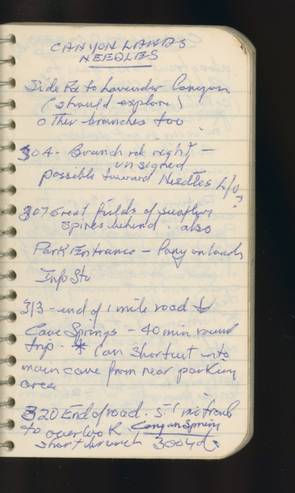 CANYON LANDS
NEEDLES
Side Rd to Lavender Canyon
(should explore)
other branches too
304 - Branch rd right -
unsigned
possible toward Needles
?
307 Great fields of
spires behind. also
Park Entrance -
Info Sta
313 - end of 1 mile road
Cave Springs - 40 min round
trip - * Can shortcut into
main cave from near parking
area
320 End of road.
to overlook Canyon
short